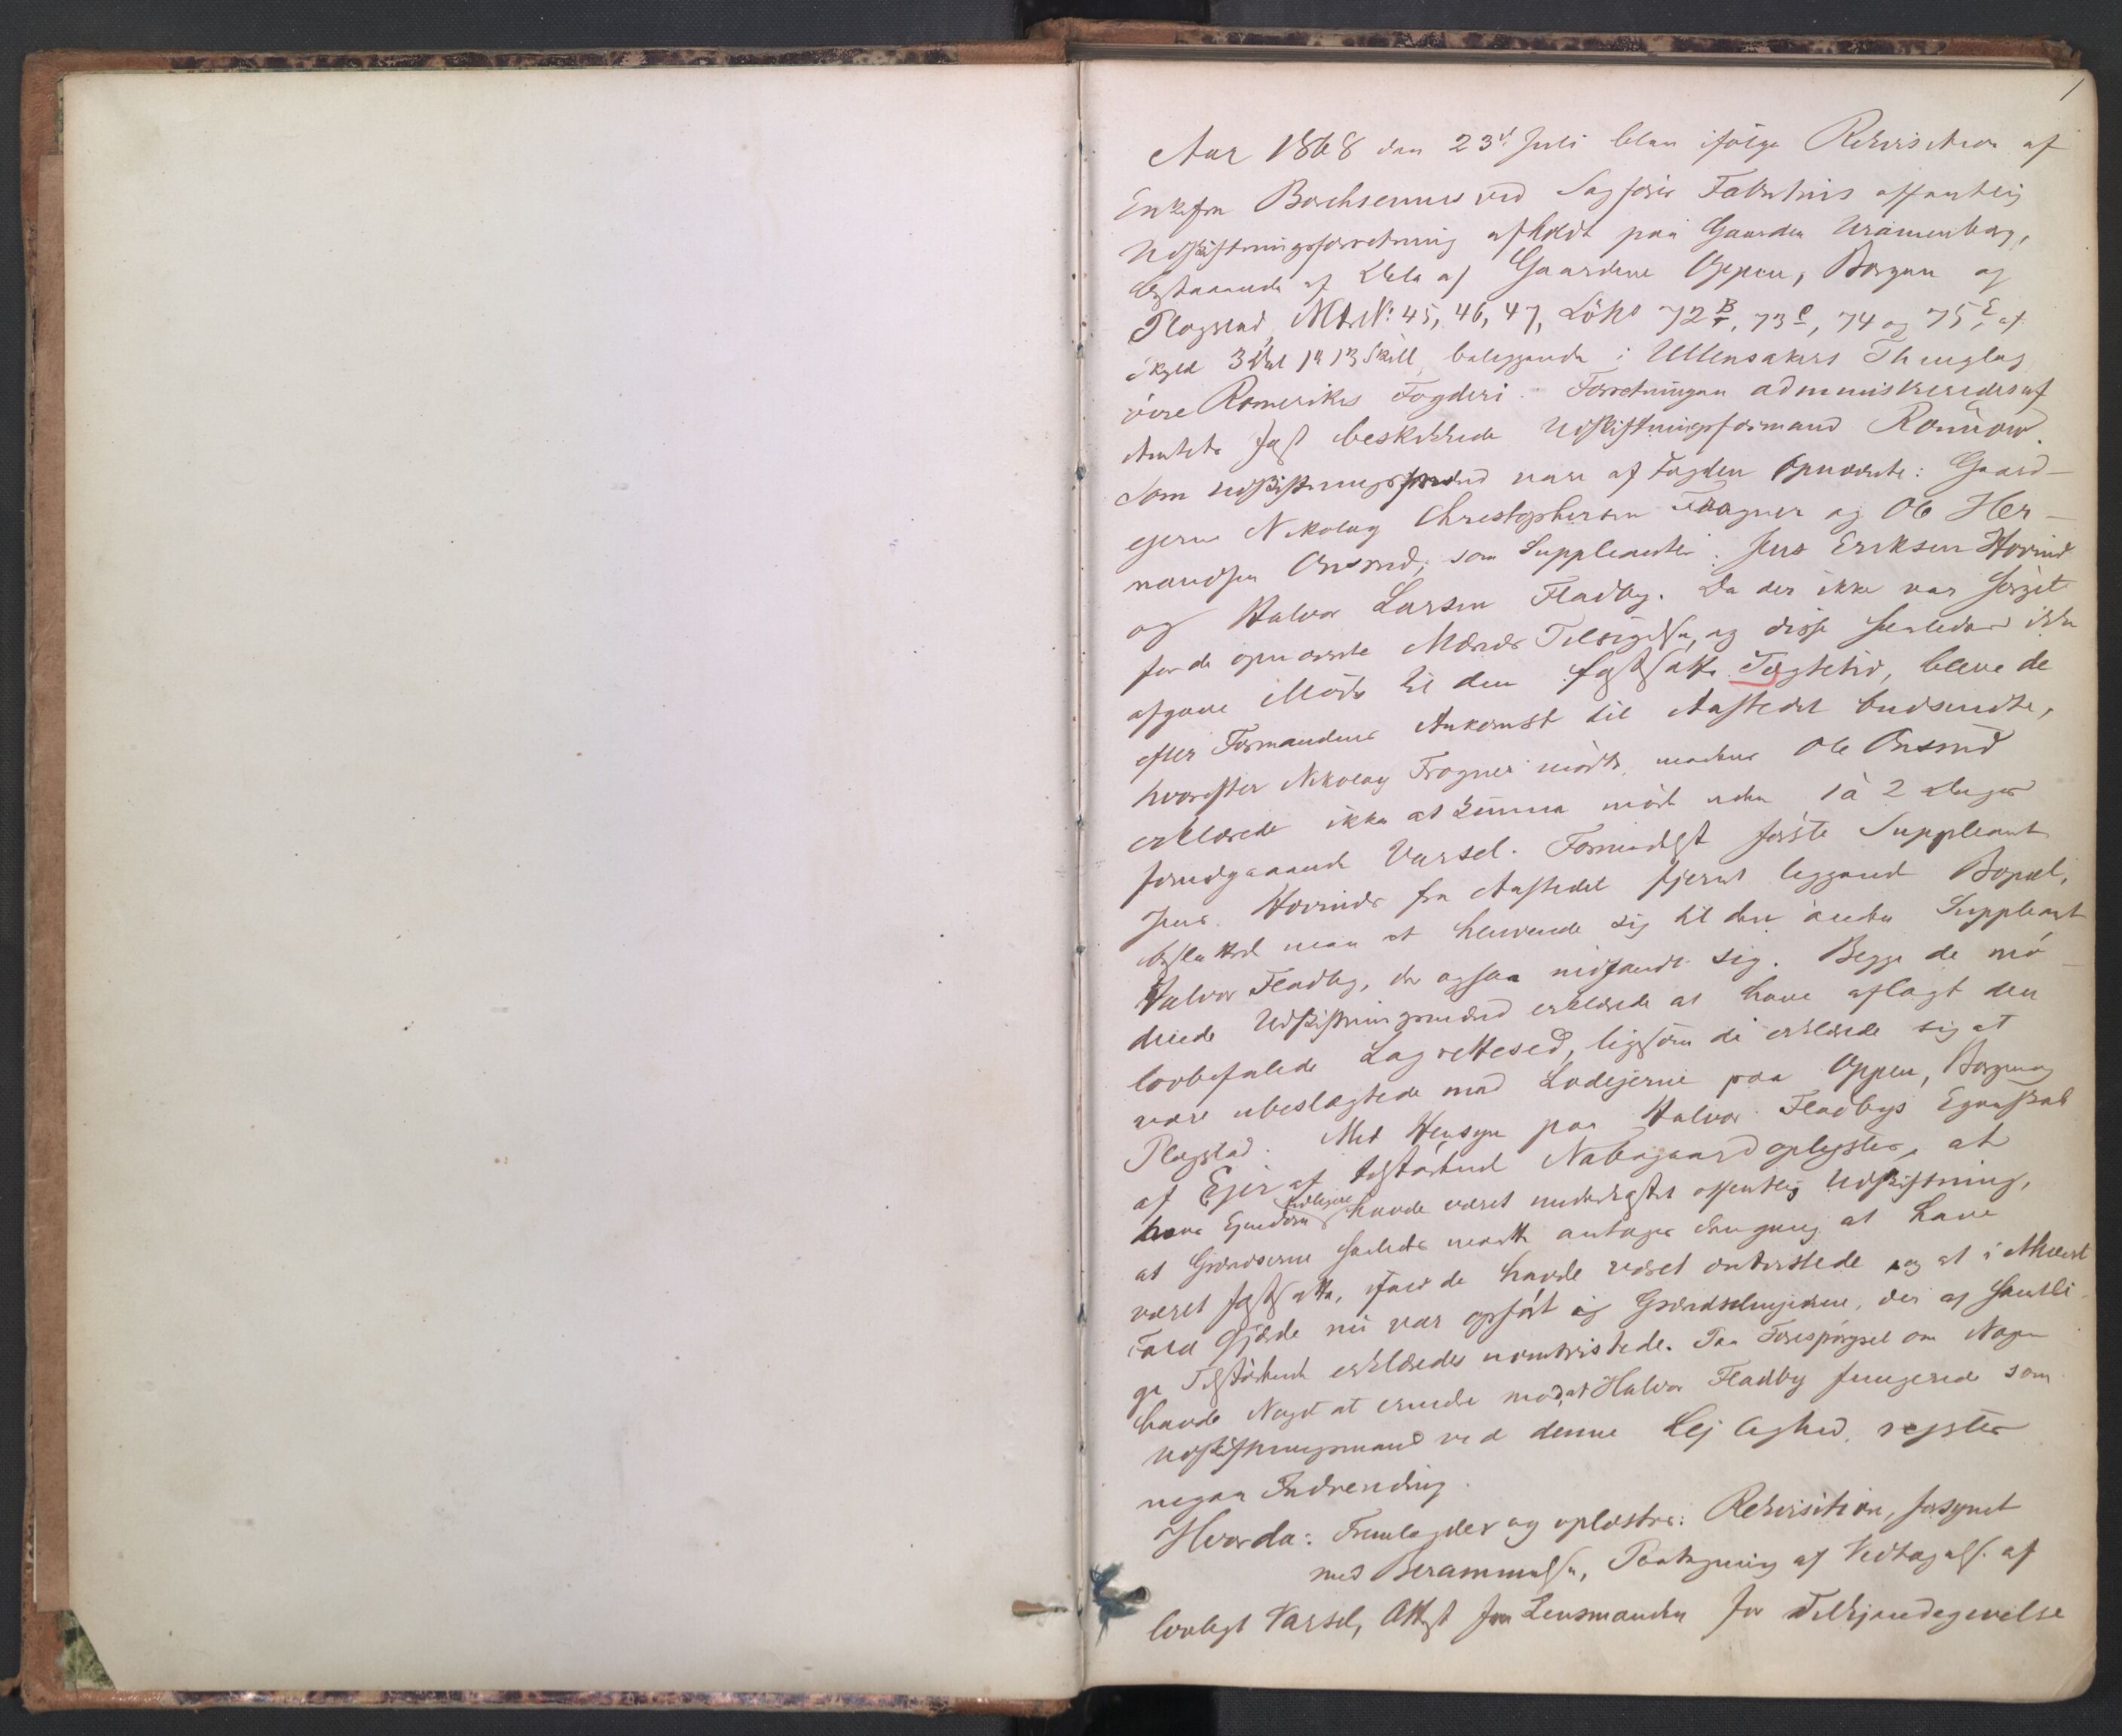 1
Aar 1868 den 23d Juli blev ifølge Rekvisition af
Enkefru Bochsenius ved Sagfører offentlig
Udskiftningsforretning afholdt paa Gaarden Uranienborg,
bestaaende af Dele af Gaardene Oppen, Borgen og
Plogstad, Mtr.N: 45, 46, 47, LöNo 72B, 73C, 74 og 75E, af
Skyld 3 Dal 1 # 13 Skill beliggende i Ullensakers Thinglag
övre Romerikes Fogderi. Forretningen administreredes af
Amtets fast beskikkede Udskiftningsformand Rønnow.
Som Udskiftningsmænd vare af Fogden opnævnte: Gaard-
ejerne Nikolay Christophersen Frogner og Ole Her-
mandsen Onsrud; som Suppleanter: Jens Eriksen Hovind
og Halvor Larsen Fladby. Da der ikke var sørget
for de opnævnte Mænds Tilsigelse, og disse saaledes ikke
afgave Møde til den fastsatte Tægtetid, bleve de
efter Formandens Ankomst til Aastedet budsendte,
hvorefter Nikolay Frogner mødte, medens Ole Onsrud
erklærede ikke at kunne møde uden 1 à 2 Dages
forudgaaende Varsel. Formedelst første Suppleant
Jens Hovinds fra Aastedet fjernt liggende Bopæl,
besluttede man at henvende sig til den anden Suppleant
Halvor Fladby, der ogsaa indfandt sig. Begge de mö-
dende Udskiftningsmænd erklærede at have aflagt den
lovbefalede Lagrettesed, ligesom de erklærede sig at
være ubeslægtede med Lodejerne paa Oppen, Borgen og
Plogstad. Med Hensyn paa Halvor Fladbys Egenskab
af Ejer af tilstødende Nabogaard oplystes, at
hans Ejendom tidligere havde været underkastet offentlig Udskiftning,
at Grændserne saaledes maatte antages dengang at have
været fastsatte, ifald de havde været omtvistede, og at i Alkald
Fald Gjærde nu var opført i Grændselinjerne, der af samtli-
ge Tilstødende erklæredes uomtvistede. Paa Forespørgsel om Nogen
havde Noget at erindre mod, at Halvor Fladby fungerede som
Udskiftningsmand ved denne Lejlighed, rejstes
ingen Indvending.
Hvorda: Fremlagdes og oplæstes: Rekvisition, forsynet
med Berammelse, Paategning af Vedtagelse af
lovligt Varsel, Attest fra Lensmanden for Tilkjendegivelse